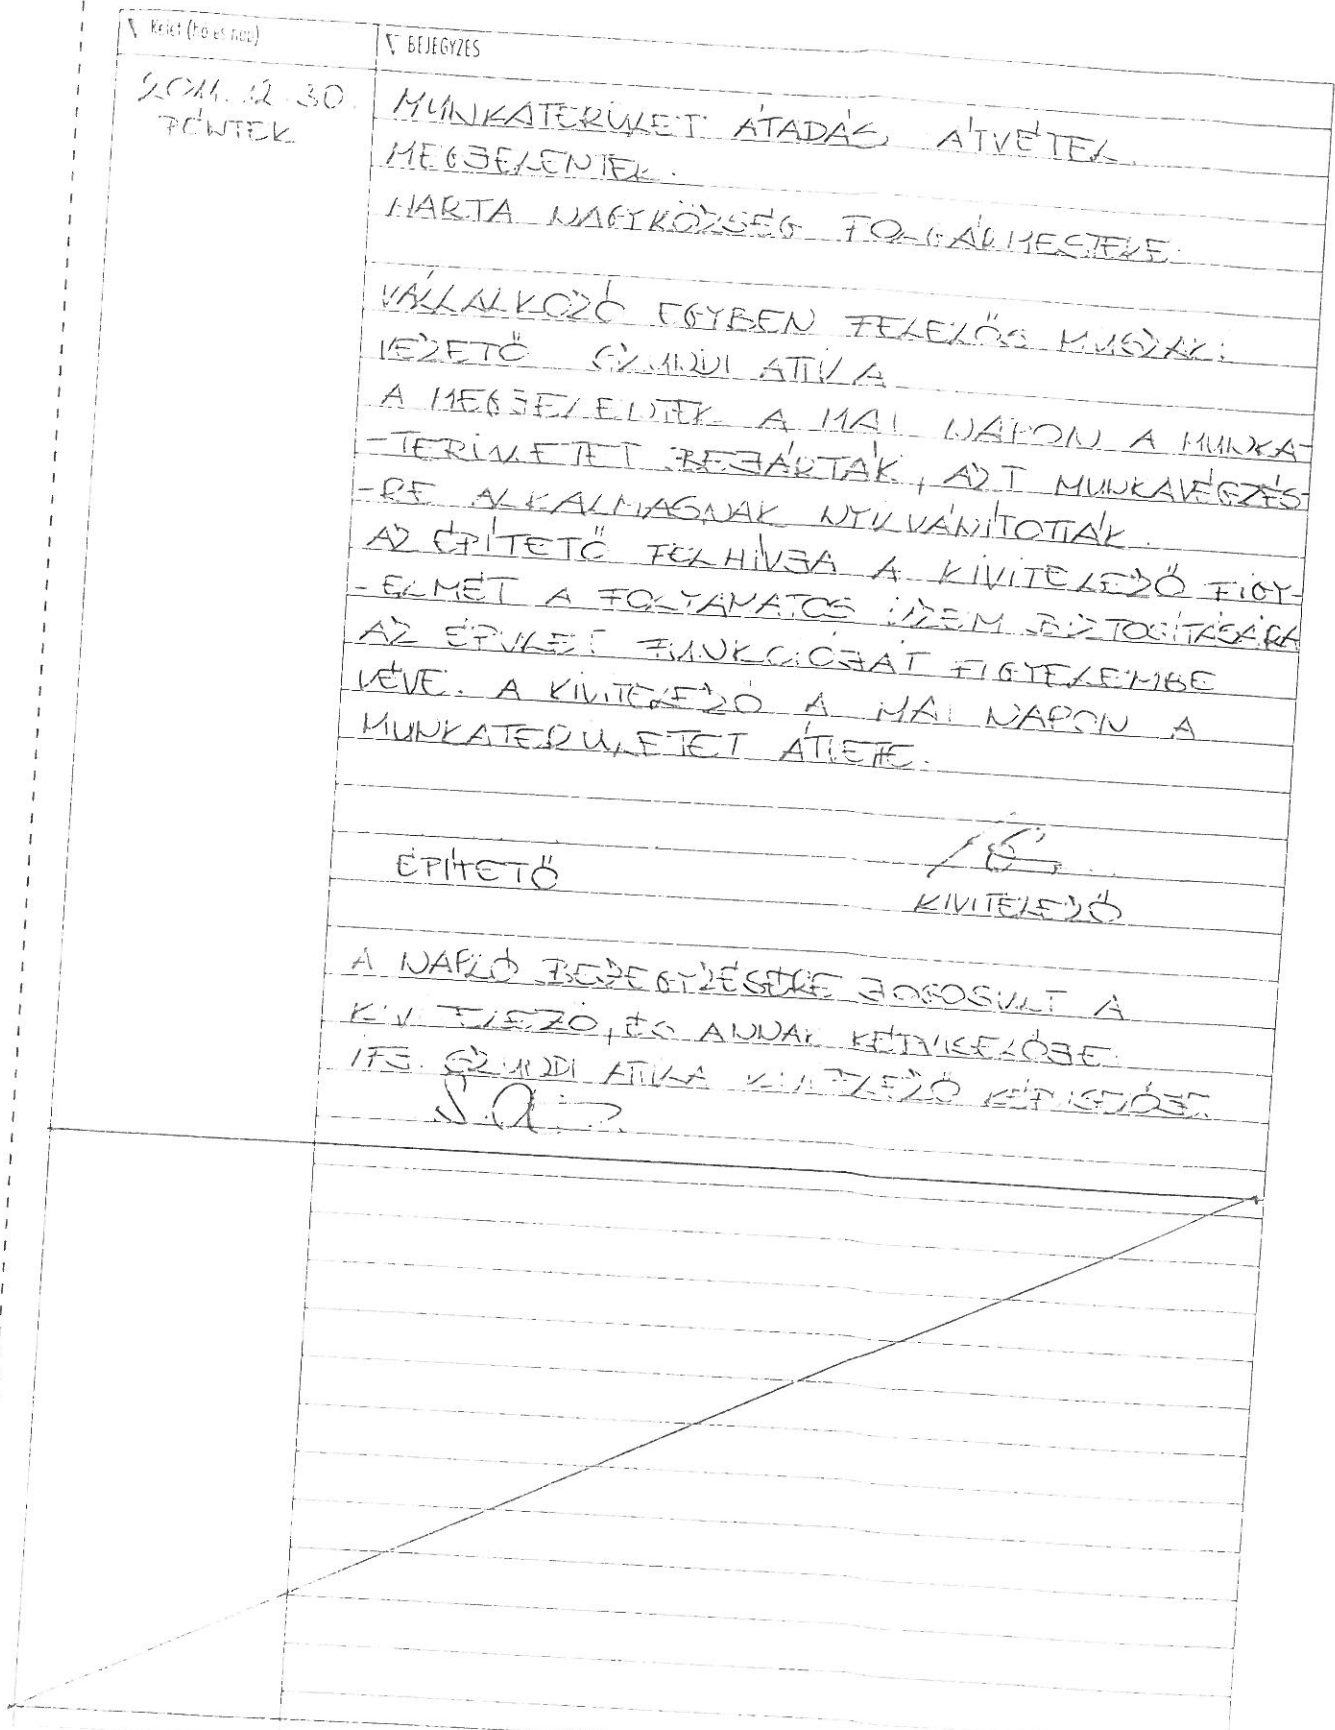 Kelet (hó és nap)
BEJEGYZÉS
2011. 12. 30.
PÉNTEK
MUNKATERÜLET ÁTADÁS, ÁTVÉTEL.
MEGJELENTEK.
HARTA NAGYKÖZSÉG POLGÁRMESTERE.
VÁLLALKOZÓ EGYBEN FELELŐS MŰSZAKI
VEZETŐ ATTILA
A MEGJELENTEK A MAI NAPON A MUNKA-
-TERÜLETET BEJÁRTÁK, AZT MUNKAVÉGZÉS-
-RE ALKALMASNAK NYILVÁNÍTOTTÁK.
AZ ÉPÍTETŐ FELHÍVJA A KIVITELEZŐ FIGY-
-ELMÉT A FOLYAMATOS ÜZEM BIZTOSÍTÁSÁRA
AZ ÉPÜLET FUNKCIÓJÁT FIGYELEMBE
VÉVE. A KIVITELEZŐ A MAI NAPON A
MUNKATERÜLETET ÁTVETTE.
ÉPÍTETŐ
KIVITELEZŐ
A NAPLÓ BEJEGYZÉSÉRE JOGOSULT A
KIVITELEZŐ, ÉS ANNAK KÉPVISELŐJE.
IFJ. ATTILA KIVITELEZŐ KÉPVISELŐJE.